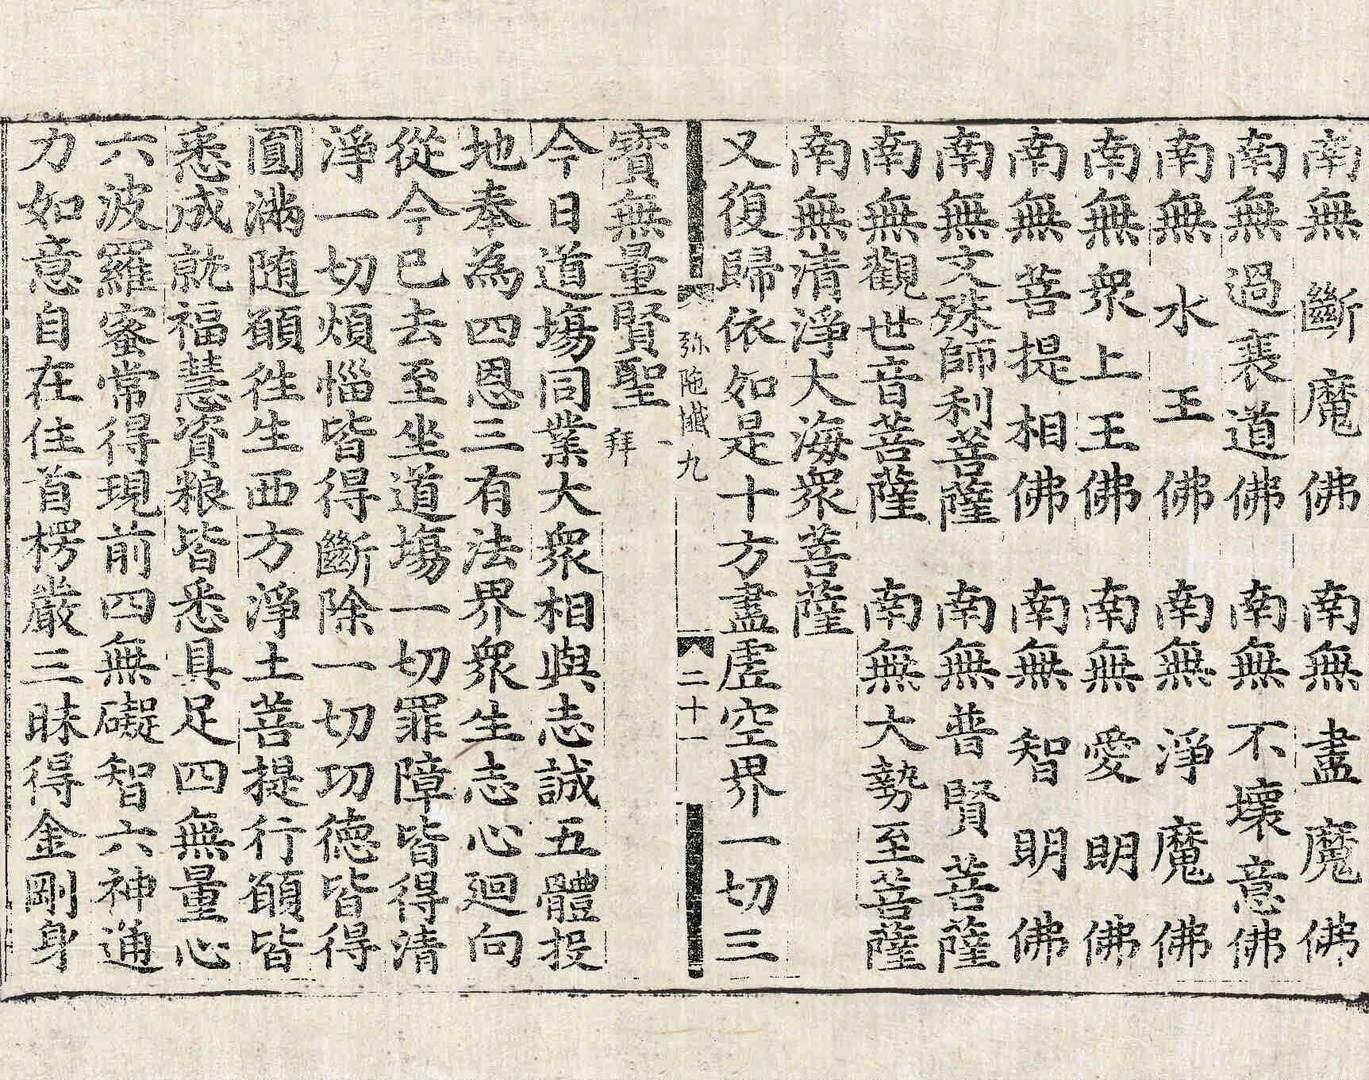 南無斷魔佛 南無盡魔佛
南無過衰道佛 南無不壞意佛
南無水王佛 南無淨魔佛
南無衆上王佛 南無愛明佛
南無菩提相佛 南無智明佛
南無文殊師利菩薩 南無普賢菩薩
南無觀世音菩薩 南無大勢至菩薩
南無清淨大海衆菩薩
又復歸依如是十方盡虛空界一切三
弥陁懺九 二十一
寶無量賢聖 一拜
今日道塲同業大衆相與志誠五體投
地奉為四恩三有法界衆生志心廻向
從今已去至坐道塲一切罪障皆得清
淨一切煩惱皆得斷除一切功德皆得
圓滿随願徃生西方淨土菩提行願皆
悉成就福慧資粮皆悉具足四無量心
六波羅蜜常得現前四無礙智六神通
力如意自在住首楞嚴三昧得金剛身